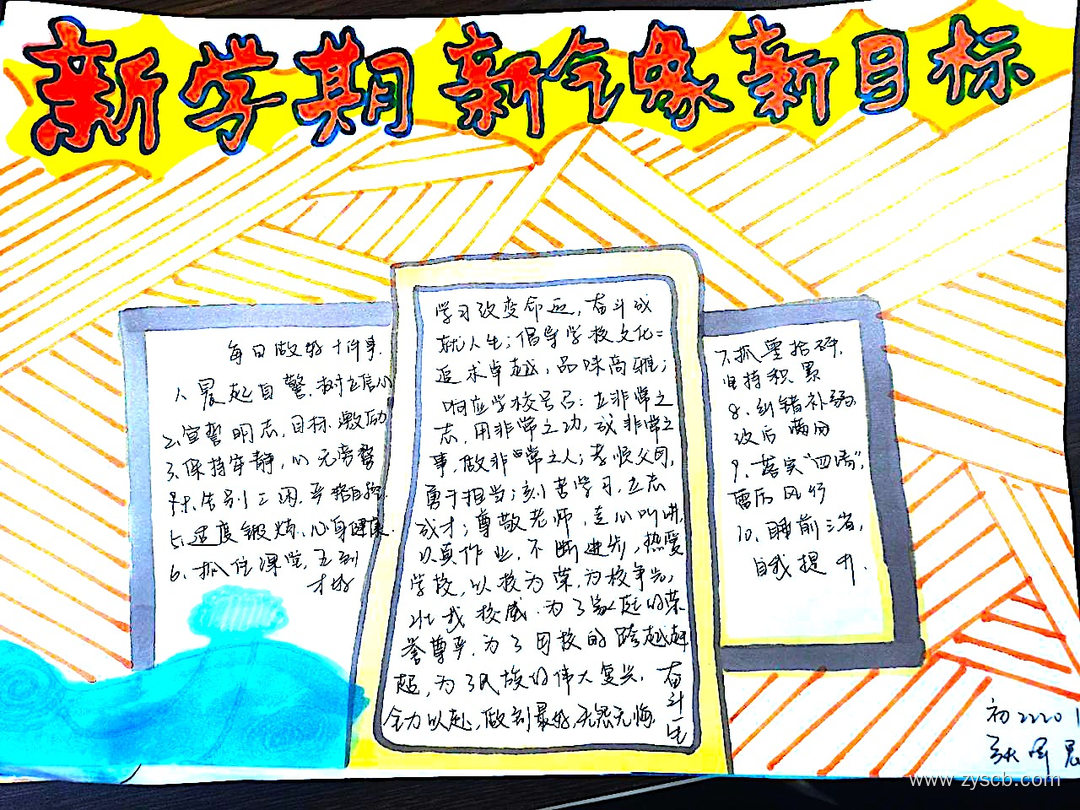 新学期 新气象 新目标
每日做好十件事.
1、晨起自警、树立信心
2、宣誓明志,目标激励
3、保持牢静,心无旁骛
4、告别三闲,严格自控
5、适度锻炼、心身健康.
6、抓住课堂,五到
才好
学习改变命运,奋斗成
就人生;倡导学校文化:
追求卓越,品味高雅;
响应学校号召:立非常之
志,用非常之功,成非常之
事,做非常之人;孝顺父母,
勇于担当;刻苦学习,立志
成才;尊敬老师,走心听讲,
认真作业,不断进步,热爱
学校,以校为荣,为校争光,
壮我校威.为了家庭的荣
誉尊严,为了母校的跨越赶
超,为了民族的伟大复兴,奋斗
全力以赴,做到最好,无怨无悔.
7、抓
坚持积累
8、纠错补弱,
改后满分
9、落实“四清”,
雷厉风行
10、睡前三省,
自我提升.
初2220
www.zyscb.com